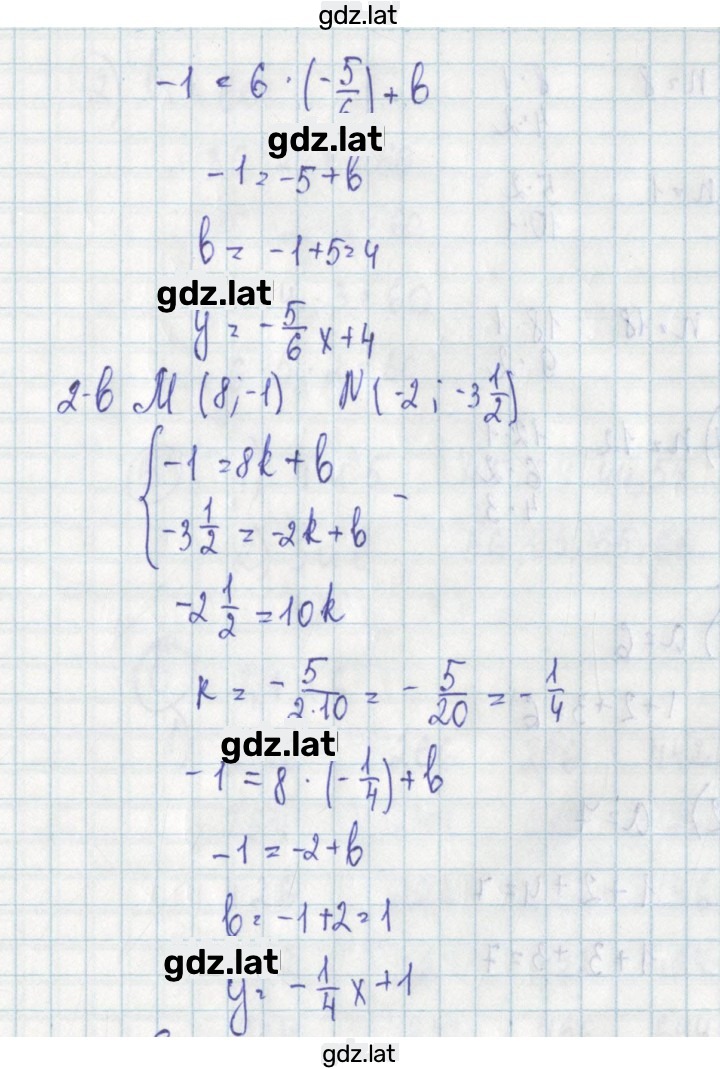 gdz.lat
-1 = 6 · (-5/6) + b
gdz.lat
-1 = -5 + b
b = -1+5=4
gdz.lat
y = -5/6 x + 4
2-в M (8; -1) N (-2; -3 1/2)
{ -1 = 8k + b
-3 1/2 = -2k + b -
-2 1/2 = 10k
k = - 5/2·10 = - 5/20 = - 1/4
gdz.lat
-1 = 8 · (-1/4) + b
-1 = -2 + b
b = -1+2=1
gdz.lat
y = - 1/4 x + 1
gdz.lat